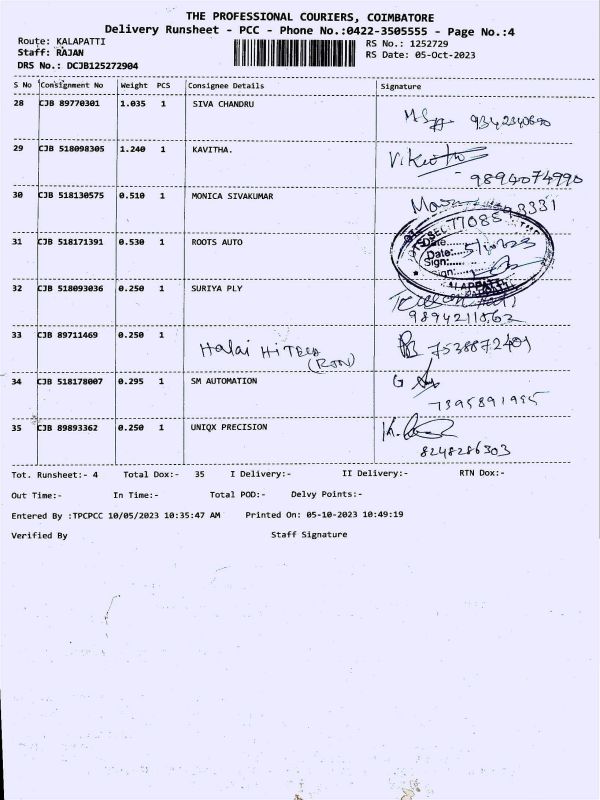 THE PROFESSIONAL COURIERS, COIMBATORE
Delivery Runsheet - PCC - Phone No.:0422-3505555 - Page No.:4
Route: KALAPATTI
RS No.: 1252729
Staff: RAJAN
RS Date: 05-Oct-2023
DRS No.: DCJB125272904
S No Consignment No Weight PCS Consignee Details Signature
28 CJB 89770301 1.035 1 SIVA CHANDRU
29 CJB 518098305 1.240 1 KAVITHA.
9894074990
30 CJB 518130575 0.510 1 MONICA SIVAKUMAR
31 CJB 518171391 0.530 1 ROOTS AUTO
77085
Date:
Sign:
32 CJB 518093036 0.250 1 SURIYA PLY
33 CJB 89711469 0.250 1 Halai (RTN) 7538872401
34 CJB 518178007 0.295 1 SM AUTOMATION
7395891995
35 CJB 89893362 0.250 1 UNIQX PRECISION
8248286303
Tot. Runsheet:- 4 Total Dox:- 35 I Delivery:- II Delivery:- RTN Dox:-
Out Time:- In Time:- Total POD:- Delvy Points:-
Entered By :TPCPCC 10/05/2023 10:35:47 AM Printed On: 05-10-2023 10:49:19
Verified By Staff Signature